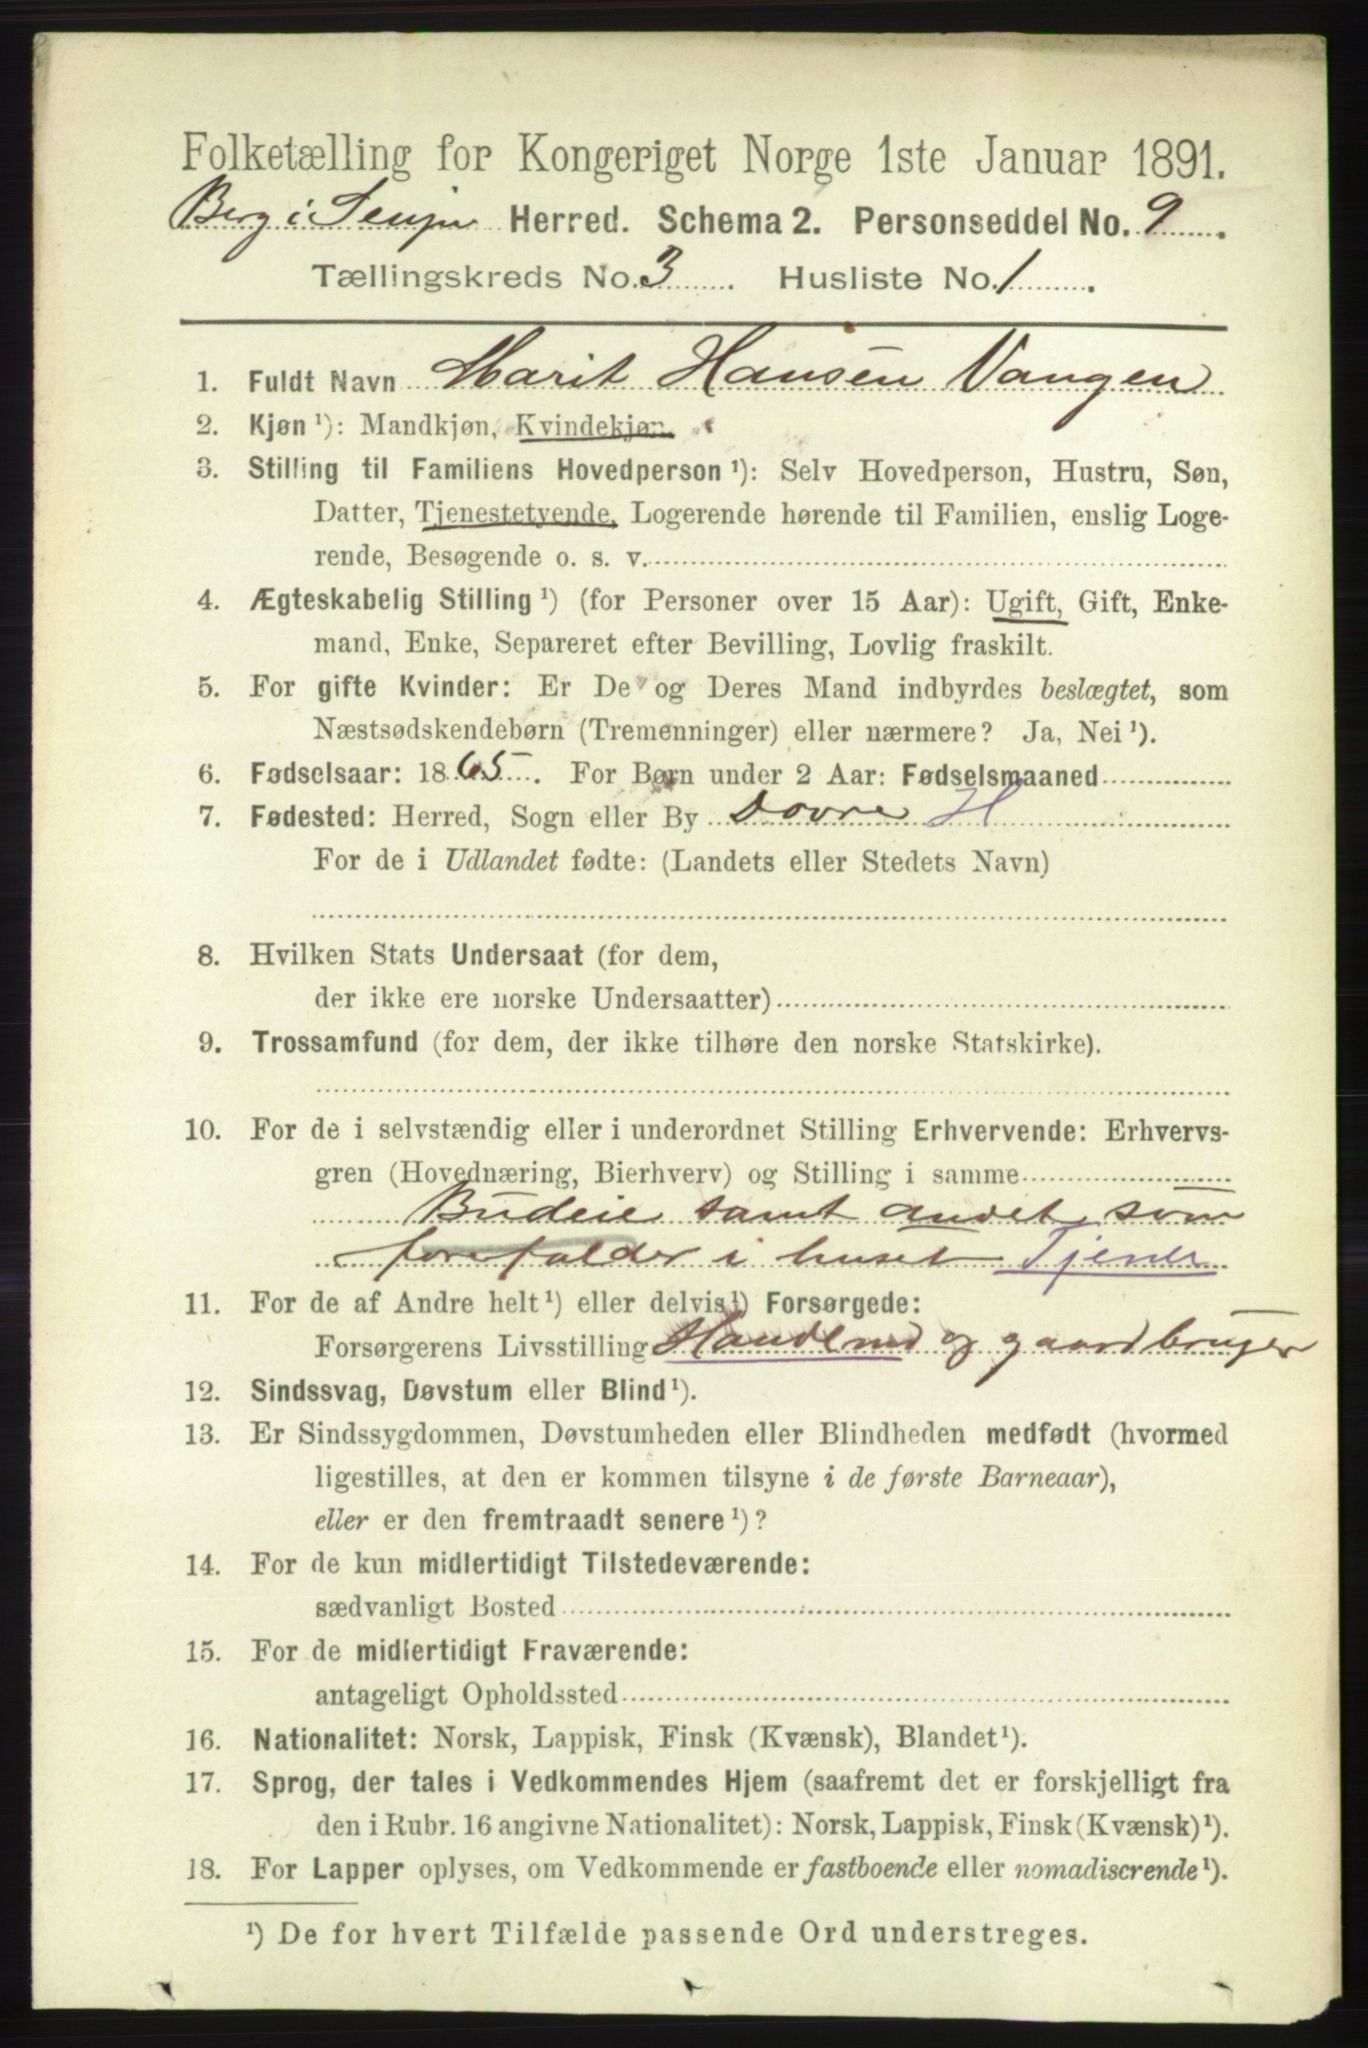 Folketælling for Kongeriget Norge 1ste Januar 1891.
Berg i Senjen Herred. Schema 2. Personseddel No. 9.
Tællingskreds No. 3. Husliste No. 1.
1. Fuldt Navn Marit Hansen Vangen
2. Kjøn ¹): Mandkjøn, Kvindekjøn.
3. Stilling til Familiens Hovedperson ¹): Selv Hovedperson, Hustru, Søn,
Datter, Tjenestetyende, Logerende hørende til Familien, enslig Loge-
rende, Besøgende o. s. v.
4. Ægteskabelig Stilling ¹) (for Personer over 15 Aar): Ugift, Gift, Enke-
mand, Enke, Separeret efter Bevilling, Lovlig fraskilt.
5. For gifte Kvinder: Er De og Deres Mand indbyrdes beslægtet, som
Næstsødskendebørn (Tremenninger) eller nærmere? Ja, Nei ¹).
6. Fødselsaar: 1865. For Børn under 2 Aar: Fødselsmaaned
7. Fødested: Herred, Sogn eller By Dovre H
For de i Udlandet fødte: (Landets eller Stedets Navn)
8. Hvilken Stats Undersaat (for dem,
der ikke ere norske Undersaatter)
9. Trossamfund (for dem, der ikke tilhøre den norske Statskirke).
10. For de i selvstændig eller i underordnet Stilling Erhvervende: Erhvervs-
gren (Hovednæring, Bierhverv) og Stilling i samme
Budeie samt andet som
forefalder i huset Tjener
11. For de af Andre helt ¹) eller delvis ¹) Forsørgede:
Forsørgerens Livsstilling Handlend og gaardbruger
12. Sindssvag, Døvstum eller Blind ¹).
13. Er Sindssygdommen, Døvstumheden eller Blindheden medfødt (hvormed
ligestilles, at den er kommen tilsyne i de første Barneaar),
eller er den fremtraadt senere ¹)?
14. For de kun midlertidigt Tilstedeværende:
sædvanligt Bosted
15. For de midlertidigt Fraværende:
antageligt Opholdssted
16. Nationalitet: Norsk, Lappisk, Finsk (Kvænsk), Blandet ¹).
17. Sprog, der tales i Vedkommendes Hjem (saafremt det er forskjelligt fra
den i Rubr. 16 angivne Nationalitet): Norsk, Lappisk, Finsk (Kvænsk) ¹).
18. For Lapper oplyses, om Vedkommende er fastboende eller nomadiserende ¹).
¹) De for hvert Tilfælde passende Ord understreges.